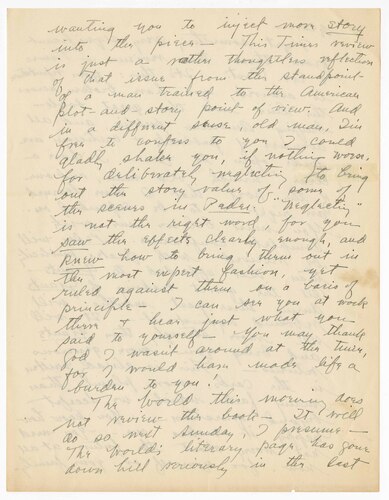 wanting you to inject more story
into the pieces — This Times review
is just a rather thoughtless reflection
of that issue from the standpoint
of a man trained to the American
plot-and-story point of view. And
in a different sense, old man, I'm
free to confess to you I could
gladly shake you, if nothing worse,
for deliberately neglecting to bring
out the story value of some of
the scenes in Padre: "Neglecting"
is not the right word, for you
saw the effects clearly enough, and
knew how to bring them out in
the most expert fashion, yet
ruled against them on a basis of
principle — I can see you at work
there & hear just what you
said to yourself — You may thank
God I wasn't around at the time,
for I would have made life a
burden to you!
The World this morning does
not review the book — It will
do so next Sunday, I presume —
The World's literary page has gone
down hill seriously in the last